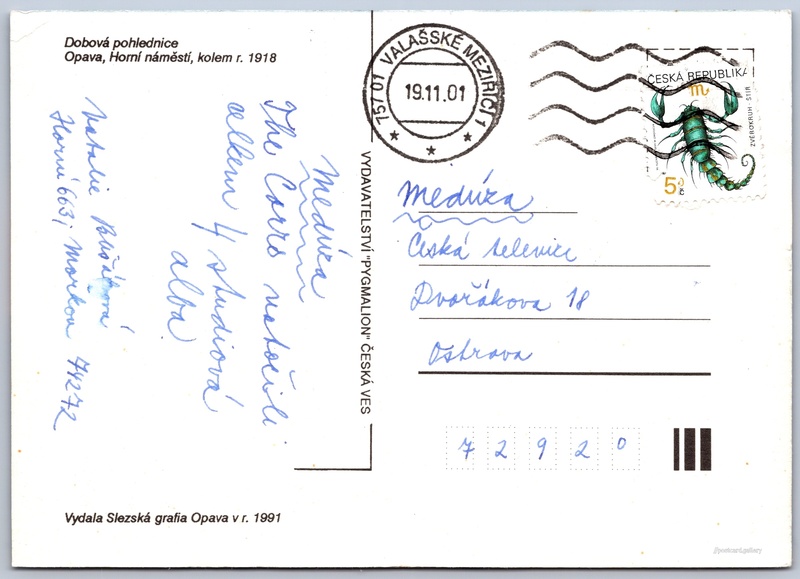 Dobová pohlednice
Opava, Horní náměstí, kolem r. 1918
757 01 VALAŠSKÉ MEZIŘÍČÍ 1
19.11.01
ČESKÁ REPUBLIKA
ZVĚROKRUH - ŠTÍR
5
Kč
Medúza
The Corrs natočili
celkem 4 studiová
alba
Natalie
Horní 663, Morkov 74272
VYDAVATELSTVÍ "PYGMALION" ČESKÁ VES
Medúza
Česká televize
Dvořákova 18
Ostrava
72920
Vydala Slezská grafia Opava v r. 1991